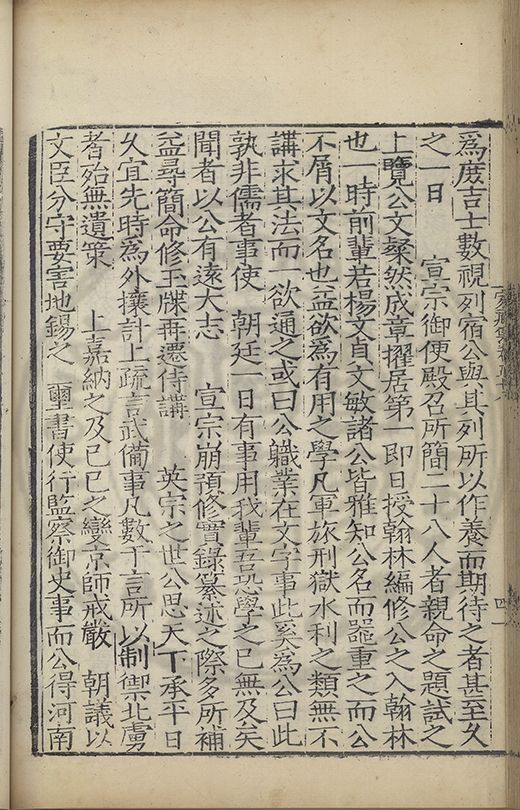 爲度吉士數視列宿公與其列所以作養而期待之者甚至久
之一日　宣宗御便殿召所簡二十八人者親命之題試之
上覽公文粲然成章擢居第一即日授翰林編修公之入翰林
也一時前輩若楊文貞文敏諸公皆雅知公名而噐重之而公
不屑以文名也益欲爲有用之學凡軍旅刑獄水利之類無不
講求其法而一欲通之或曰公職業在文字事此奚爲公曰此
孰非儒者事使　朝廷一日有事用我輩吾恐學之已無及矣
聞者以公有遠大志　宣宗崩預修實錄纂述之際多所補
益尋簡命修玉牒再遷侍講　英宗之世公思天下承平日
久宜先時爲外攘計上疏言武備事凡數千言所以制禦北虜
者殆無遺策　上嘉納之及己巳之變京師戒嚴　朝議以
文臣分守要害地錫之　璽書使行監察御史事而公得河南